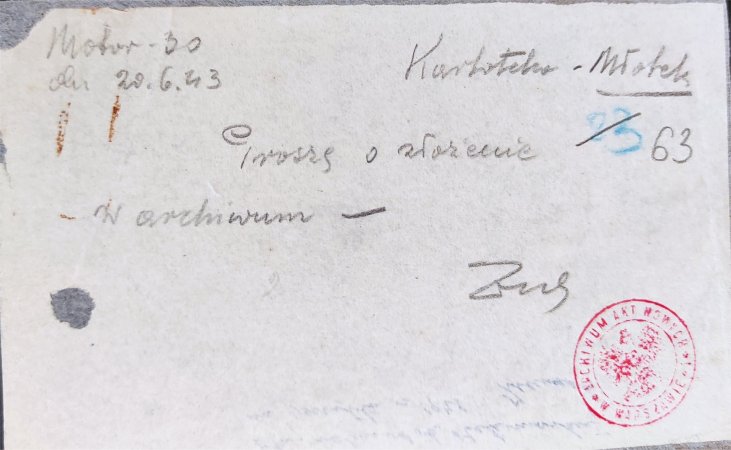 Motor-30
dn 20.6.43
Kartoteka - Młotek
/ 23 63
Proszę o złożenie
w archiwum —
ARCHIWUM AKT NOWYCH